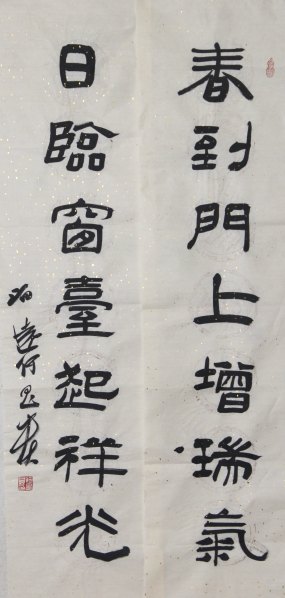 春到門上增瑞氣
日臨窗臺起祥光